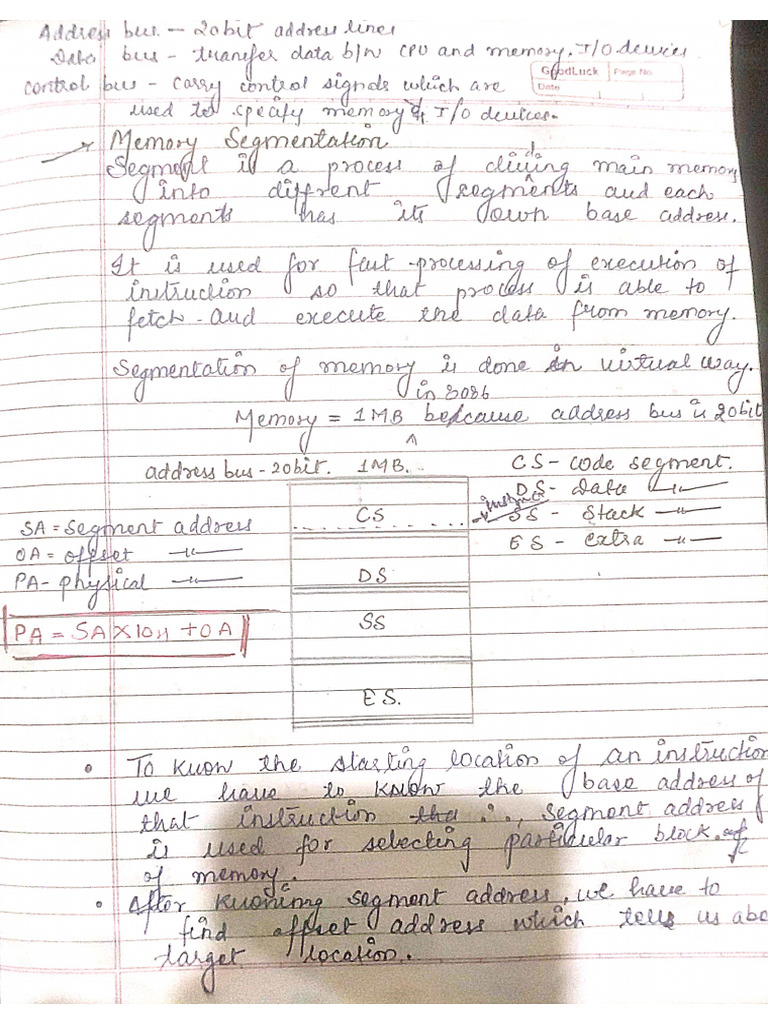 Address bus - 20bit address lines
Data bus - transfer data b/w CPU and memory, I/O devices
GoodLuck Page No.
Date
control bus - carry control signals which are
used to specify memory & I/O devices.
Memory Segmentation
Segment is a process of dividing main memory
into diffrent segments and each
segments has its own base address.
It is used for fast processing of execution of
instruction so that process is able to
fetch and execute the data from memory.
Segmentation of memory is done in virtual way.
in 8086
Memory = 1MB because address bus is 20bit
address bus - 20bit. 1MB.
CS - code segment.
DS - Data -〃-
SS - Stack -〃-
ES - extra -〃-
CS
SA = Segment address
OA = offset -〃-
PA - physical -〃-
DS
PA = SA X10H + OA
SS
ES.
• To know the starting location of an instruction
we have to know the base address of
that instruction ∴, segment address
is used for selecting particular block
of memory.
• After knowning segment address, we have to
find offset address which tells us abo
target location.